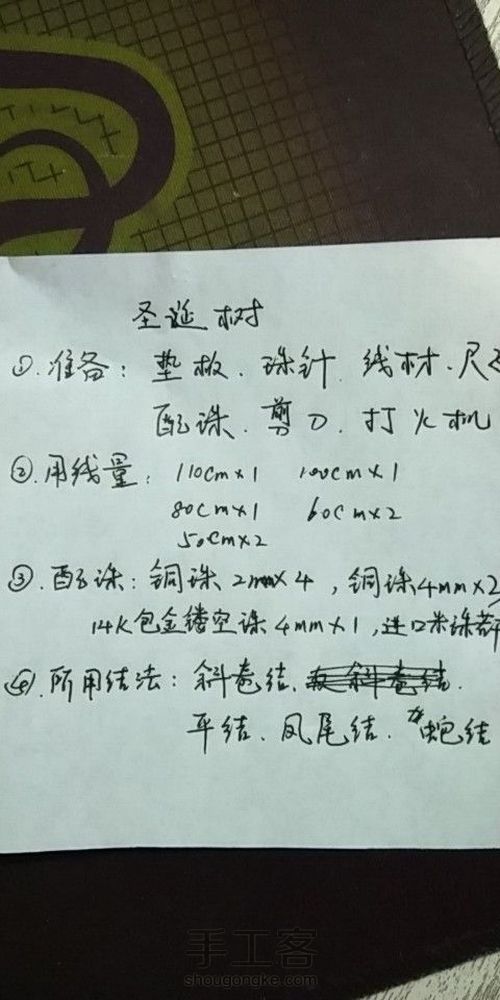 圣诞树
①.准备：垫板、珠针、线材、尺子
配珠、剪刀、打火机
②.用线量：110cm×1 100cm×1
80cm×1 60cm×2
50cm×2
③.配珠：铜珠2mm×4，铜珠4mm×2
14K包金镂空珠4mm×1，进口米珠若干
④.所用结法：斜卷结、
平结、凤尾结、蛇结
手工客
shougongke.com